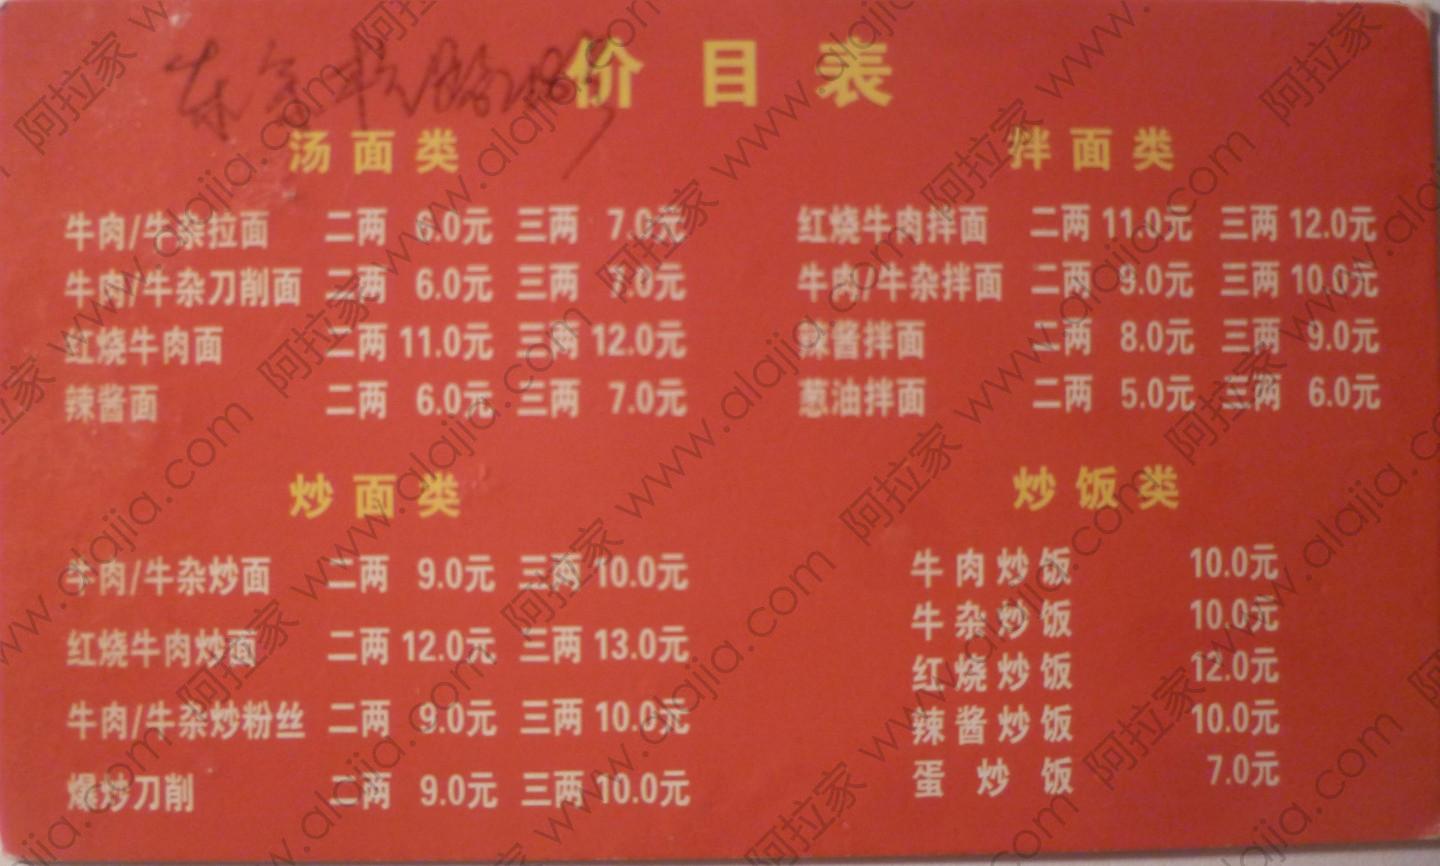 价目表
汤面类
牛肉/牛杂拉面 二两 6.0元 三两 7.0元
牛肉/牛杂刀削面 二两 6.0元 三两 7.0元
红烧牛肉面 二两 11.0元 三两 12.0元
辣酱面 二两 6.0元 三两 7.0元
拌面类
红烧牛肉拌面 二两 11.0元 三两 12.0元
牛肉/牛杂拌面 二两 9.0元 三两 10.0元
辣酱拌面 二两 8.0元 三两 9.0元
葱油拌面 二两 5.0元 三两 6.0元
炒面类
牛肉/牛杂炒面 二两 9.0元 三两 10.0元
红烧牛肉炒面 二两 12.0元 三两 13.0元
牛肉/牛杂炒粉丝 二两 9.0元 三两 10.0元
爆炒刀削 二两 9.0元 三两 10.0元
炒饭类
牛肉炒饭 10.0元
牛杂炒饭 10.0元
红烧炒饭 12.0元
辣酱炒饭 10.0元
蛋炒饭 7.0元
阿拉家 www.alajia.com